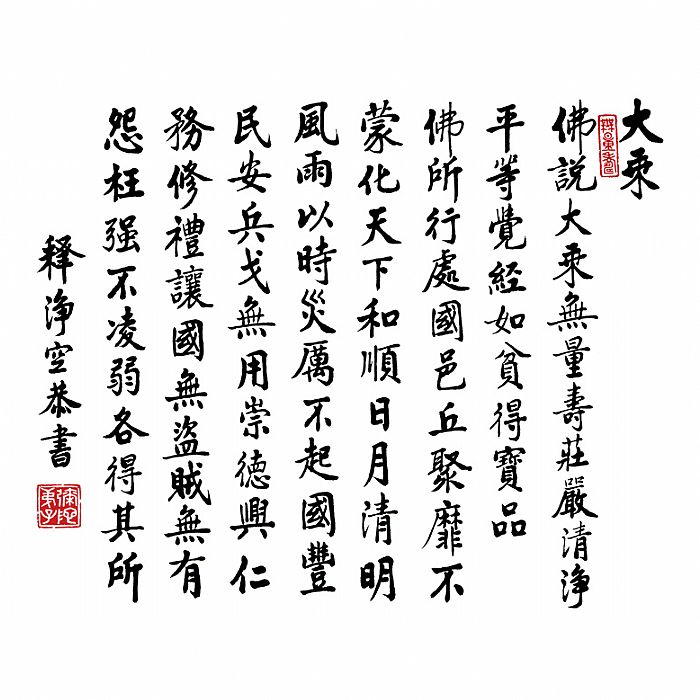 大乘
無量壽
佛說大乘無量壽莊嚴清淨
平等覺經如貧得寶品
佛所行處國邑丘聚靡不
蒙化天下和順日月清明
風雨以時災厲不起國豐
民安兵戈無用崇德興仁
務修禮讓國無盜賊無有
怨枉强不凌弱各得其所
释淨空恭書
彌陀弟子